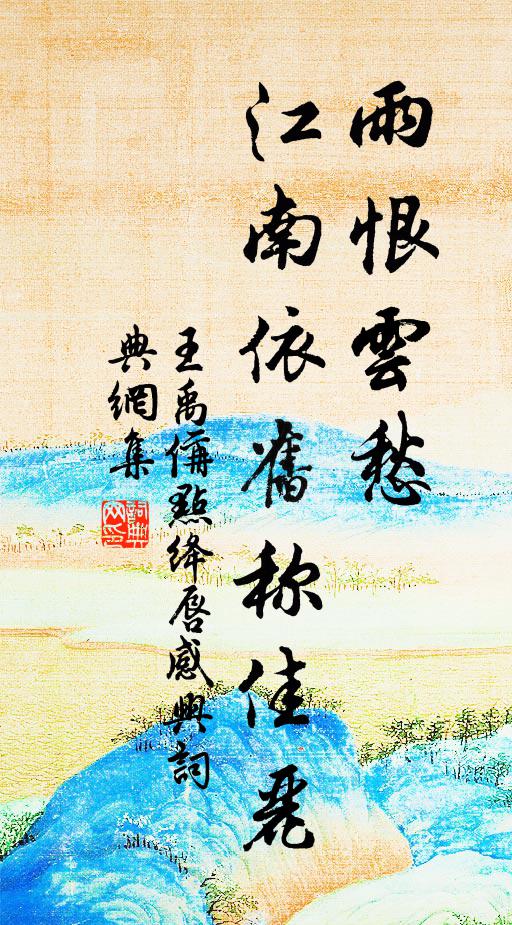 雨恨雲愁
江南依舊称佳麗
王禹偁點绛唇感興詞
典網集
詞典
网印